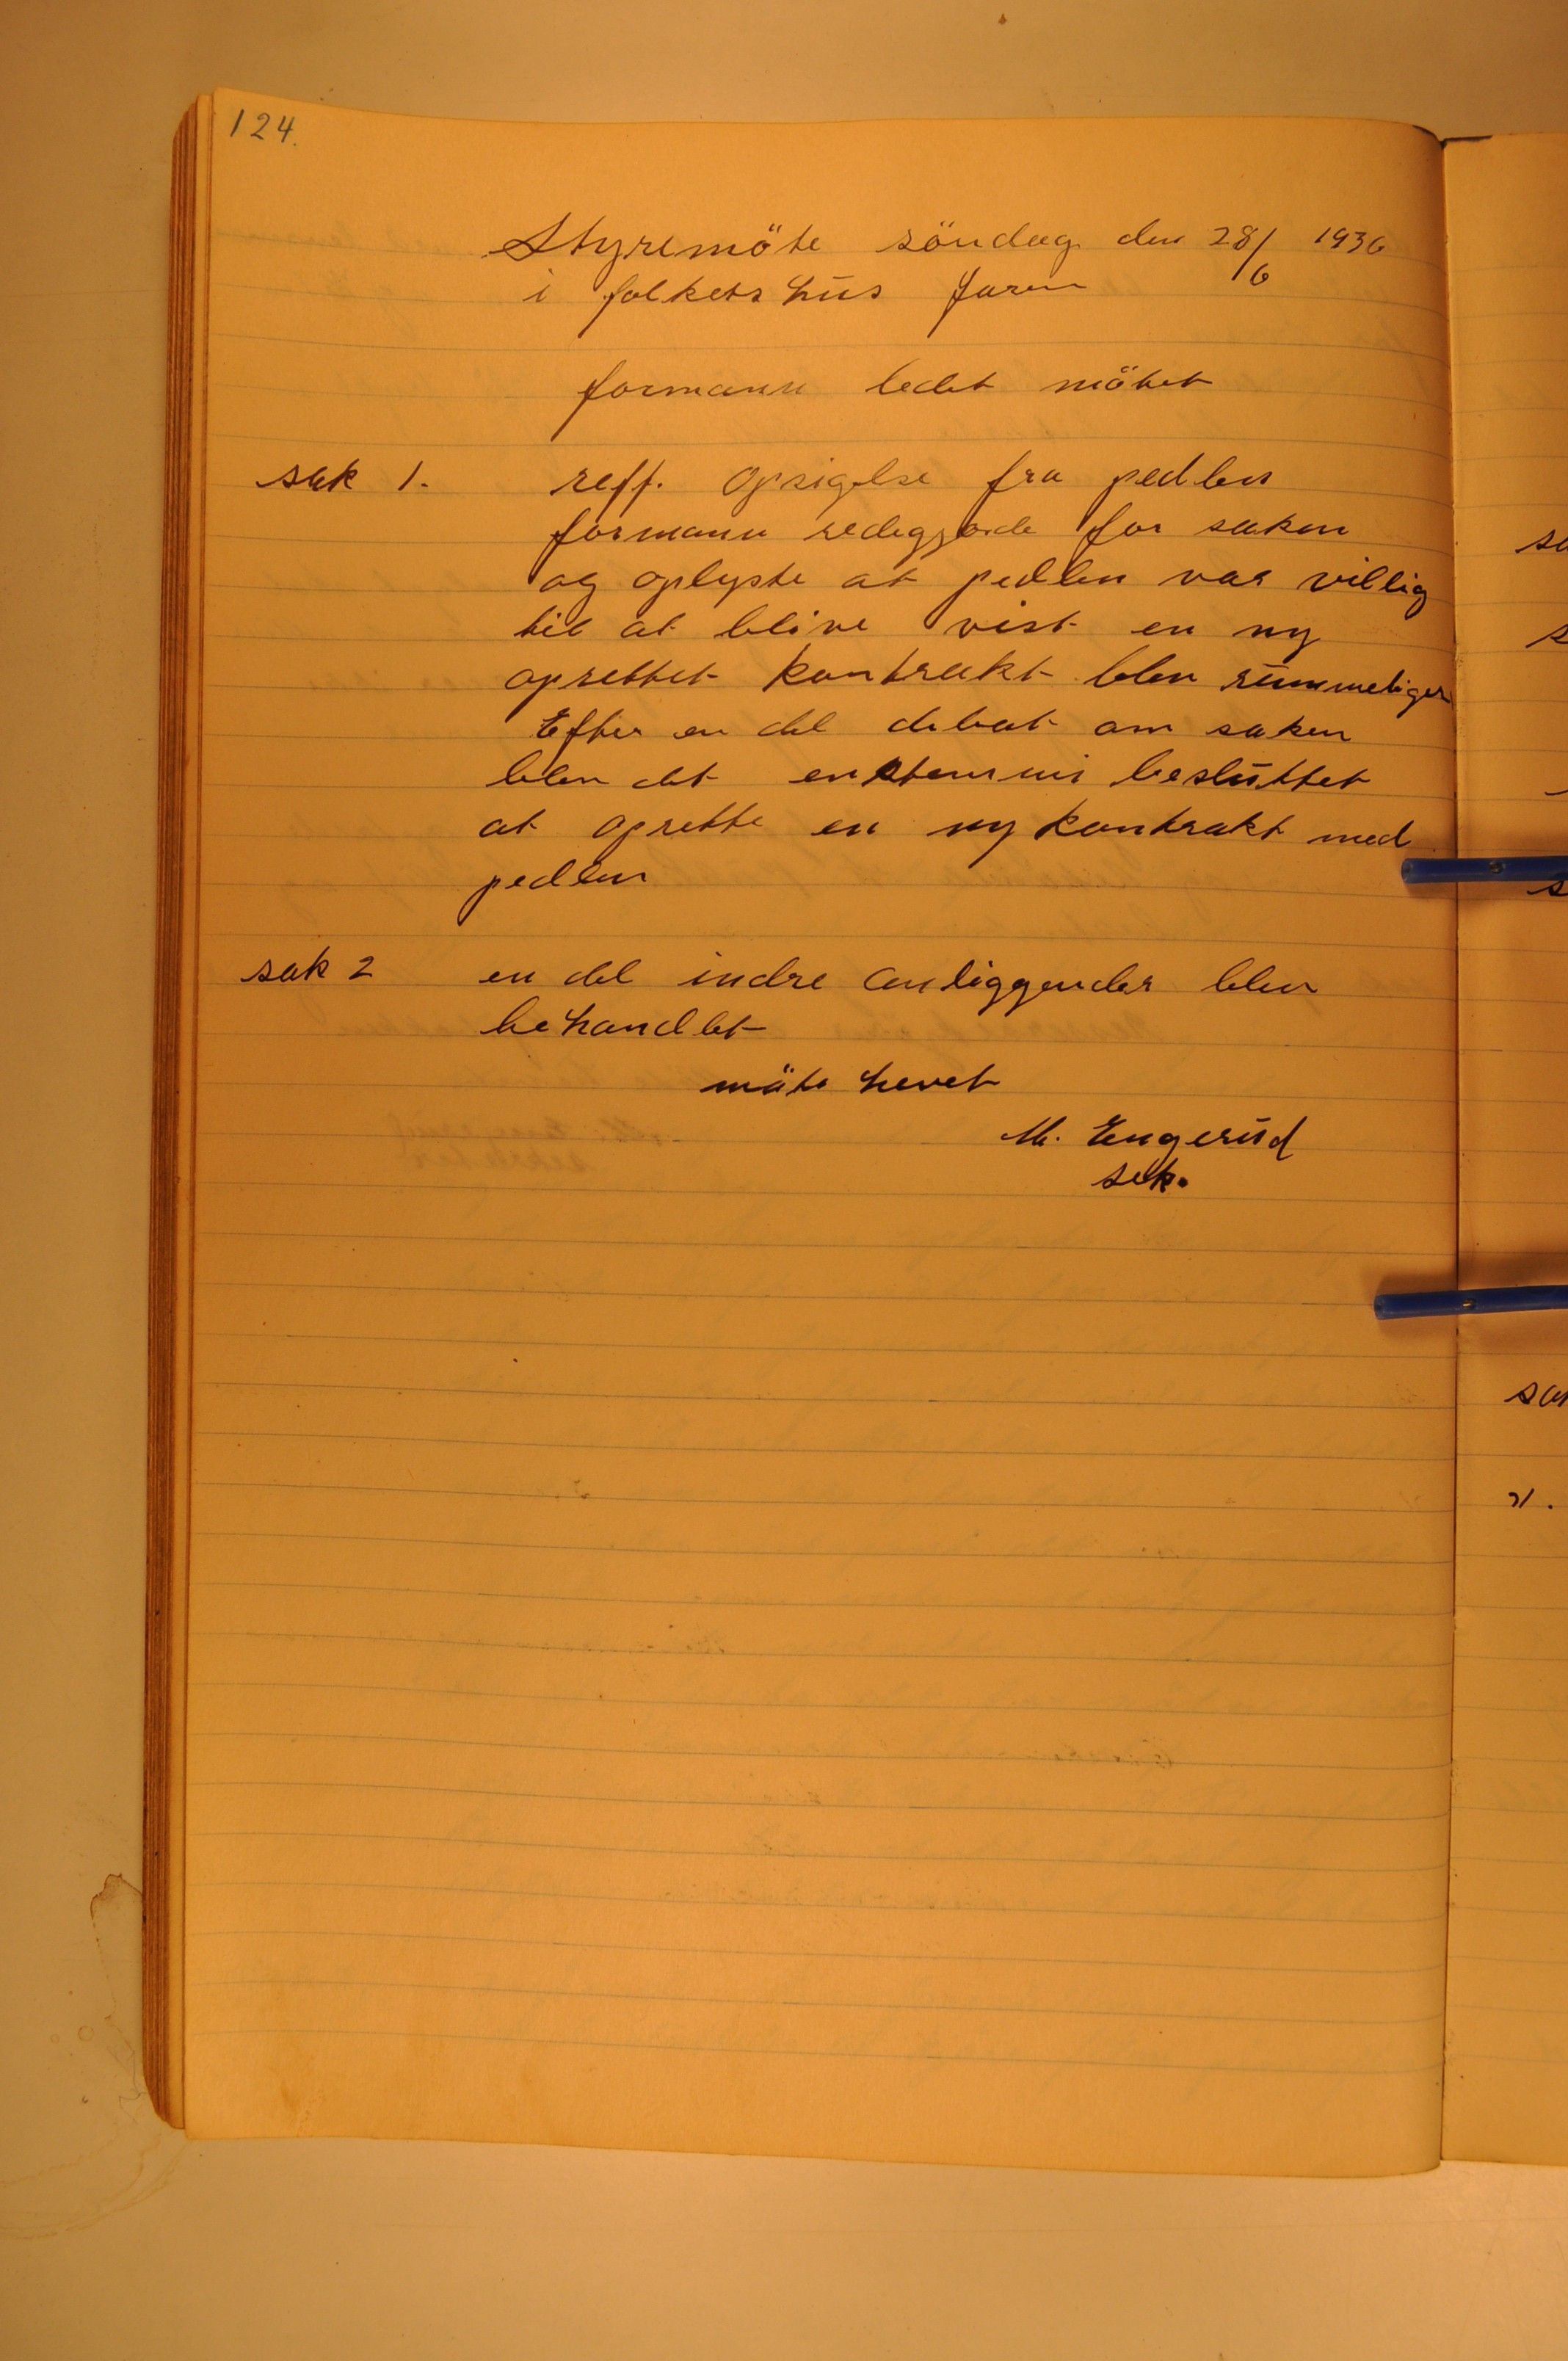 124.
Styremöte söndag den 28/6 1936
i folkets hus Furum
formann ledet mötet
sak 1. reff. Opsigelse fra pedlen
formann redegjorde for saken
og oplyste at pedlen var villig
til at blive vist en ny
oprettet kontrakt blev rummeliger
Efter en del debat om saken
blev det enstemmi besluttet
at oprette en ny kontrakt med
pedlen
sak 2 en del indre anliggender blev
behandlet
möte hevet
M. Engerud
sek.